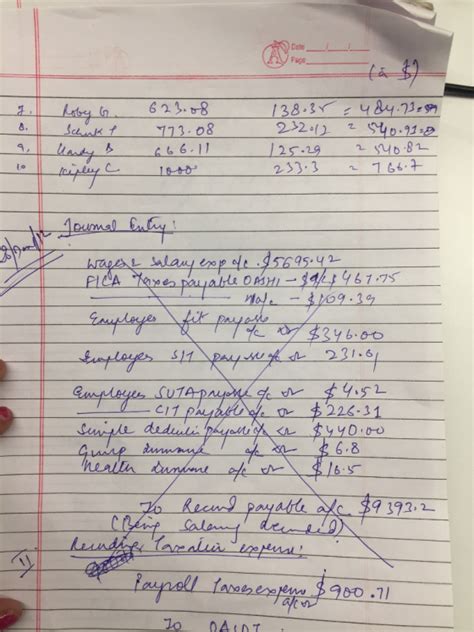 Date
Page
(in $)
7. Roby G. 623.08 138.35 = 484.73
8. 773.08 232.12 = 540.93
9. Hardy B 666.11 125.29 = 540.82
10 Kipley C 1000 233.3 = 766.7
Journal Entry:
Wages & Salary exp a/c $5695.42
FICA Taxes payable OASHI - $467.75
$109.39
Employee fit payable
a/c $346.00
Employees SIT payable a/c 231.61
Employees SUTA payable a/c or $4.52
CIT payable a/c or $226.31
Simple deductn payable a/c or $440.00
Group Insurance a/c or $6.8
Health Insurance a/c or $16.5
To Record payable a/c $9393.2
(Being Salary
expense:
Payroll Taxes expens $900.71
a/c or
To